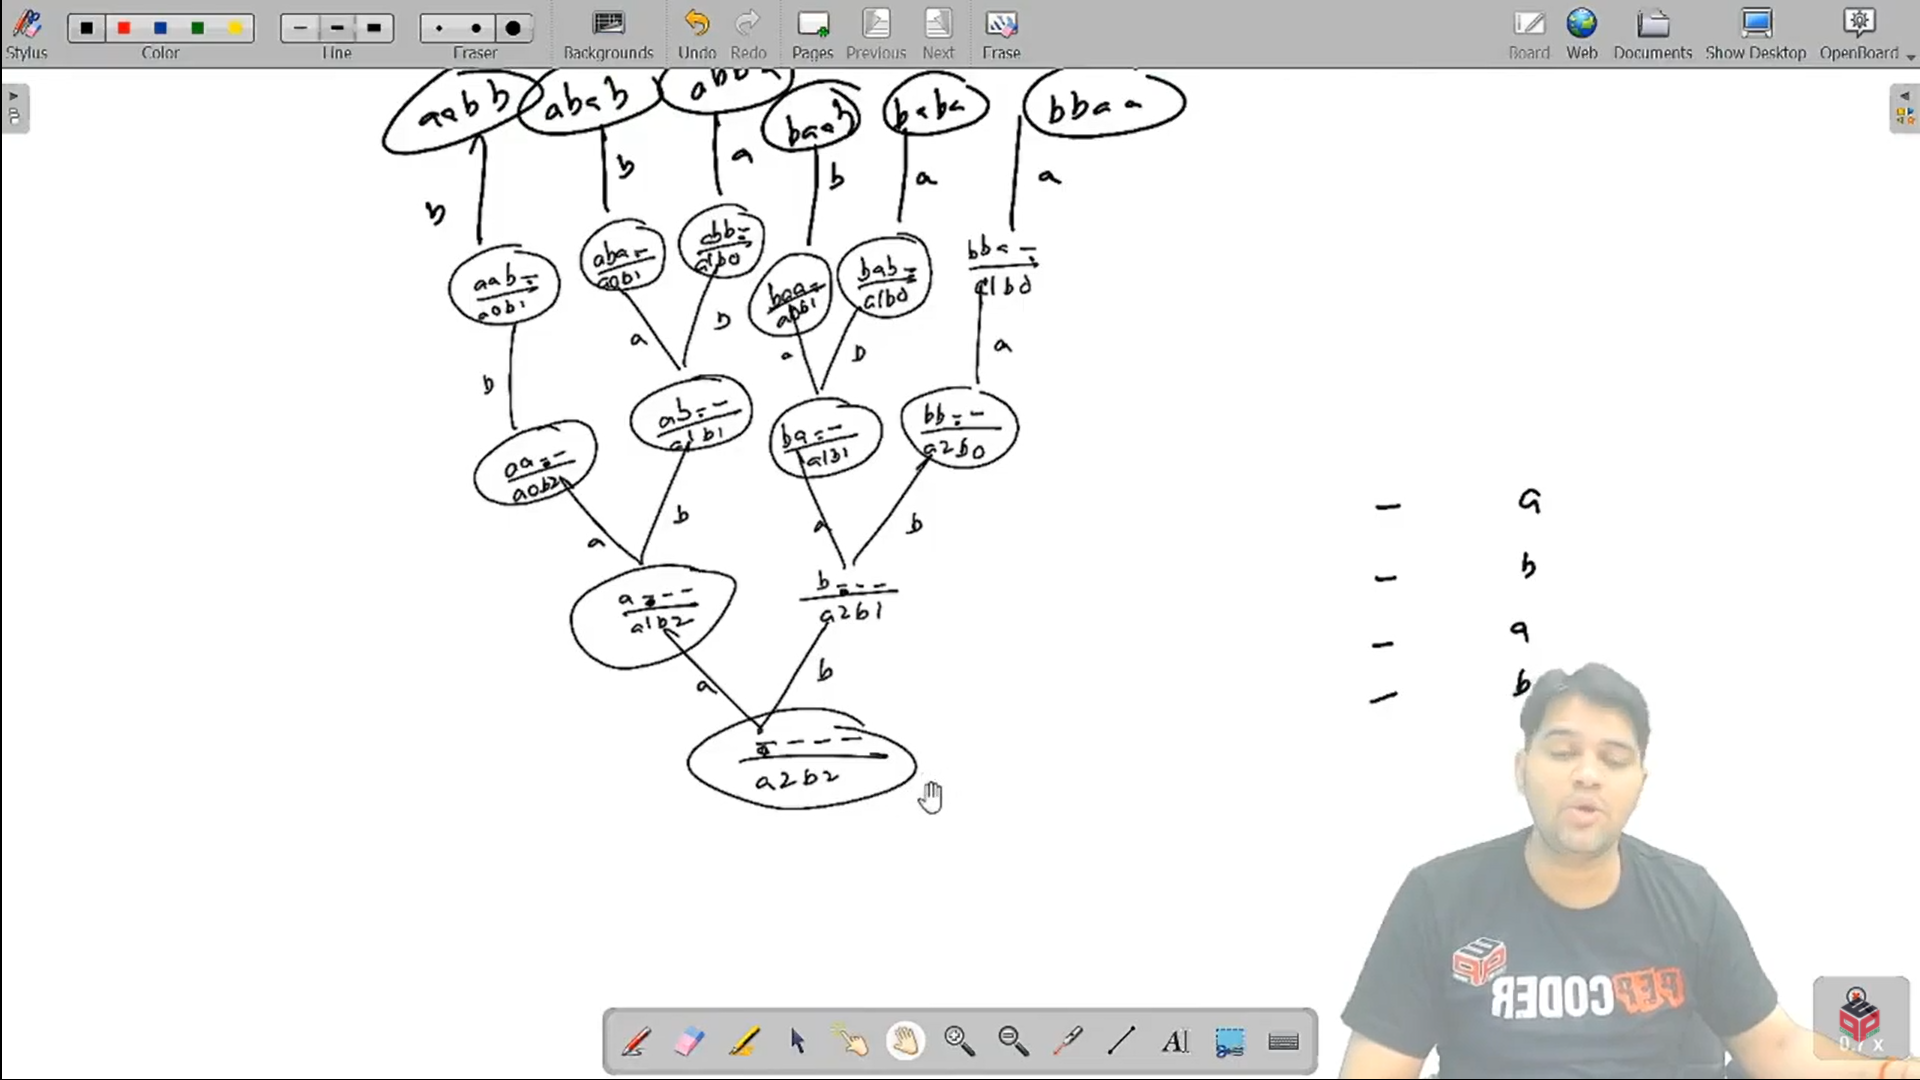 Stylus Color Line Eraser Backgrounds Undo Redo Pages Previous Next Erase Board Web Documents Show Desktop OpenBoard
aabb abab baab baba bbaa
b b a b a a
aab-- a0b1
aba-- a0b1
abb-- a1b0
baa-- a0b1
bab-- a1b0
bba-- a1b0
b a b a b a
aa-- a0b2
ab-- a1b1
ba-- a1b1
bb-- a2b0
a b a b
a--- a1b2
b--- a2b1
a b
---- a2b2
- a
- b
- a
- b
PEPCODER
0.7 x